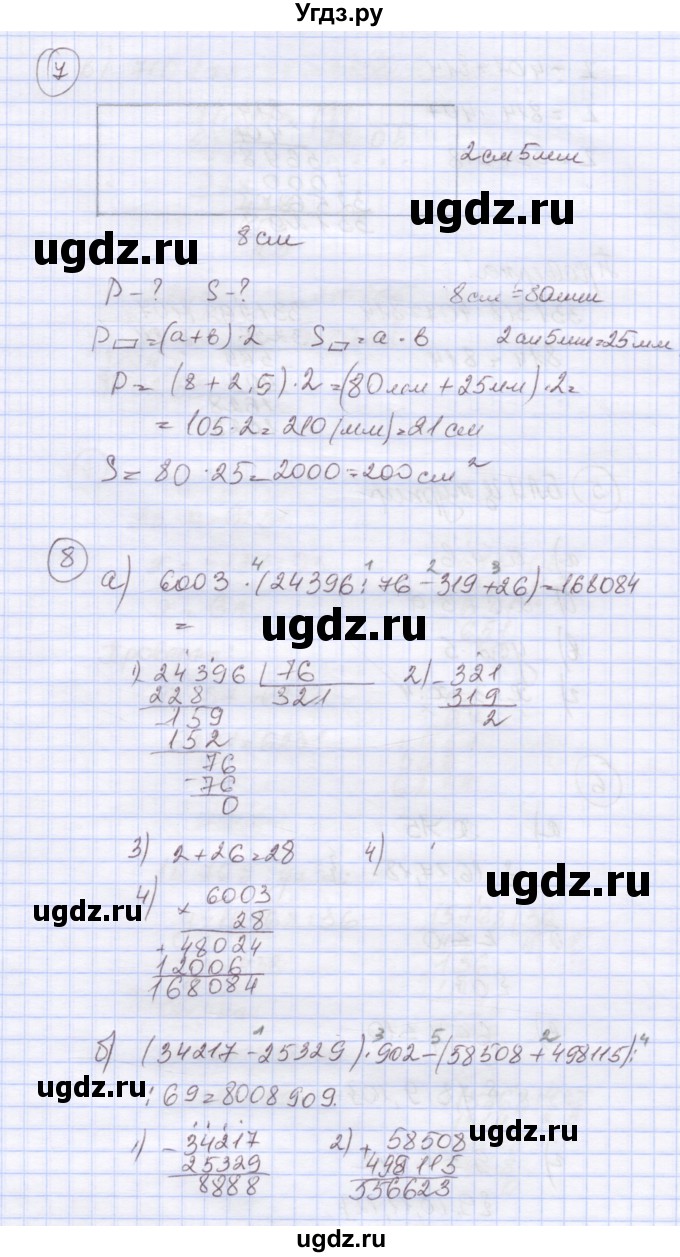 Угдз.ру
7
2см 5мм
ugdz.ru
ugdz.ru
8см
P-? S-? 8см = 80мм
P▭=(a+в)·2 S▭=a·в 2см5мм=25мм
ugdz.ru
P= (8+2,5)·2=(80мм+25мм)·2=
= 105·2=210(мм)=21см
S= 80·25=2000=200см²
8
а) 6003 ·⁴(24396:¹76-²319+³26)=168084
ugdz.ru
=
1) 24396 76 2) -321
228 321 319
-159 2
152
76
-76
0
3) 2+26=28 4)
ugdz.ru
ugdz.ru
4) 6003
× 28
+48024
12006
168084
б) (34217-¹25329)·³902-⁵(58508+²498115):⁴
ugdz.ru
:69=8008909.
ugdz.ru
1) -34217 2) +58508
25329 498115
8888 556623
ugdz.ru